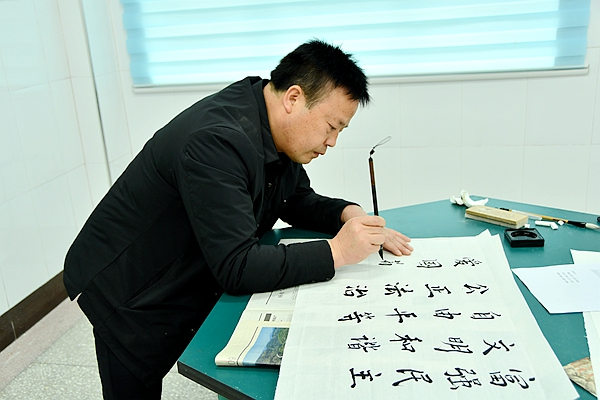 富强民主
文明和谐
自由平等
公正法治
爱国